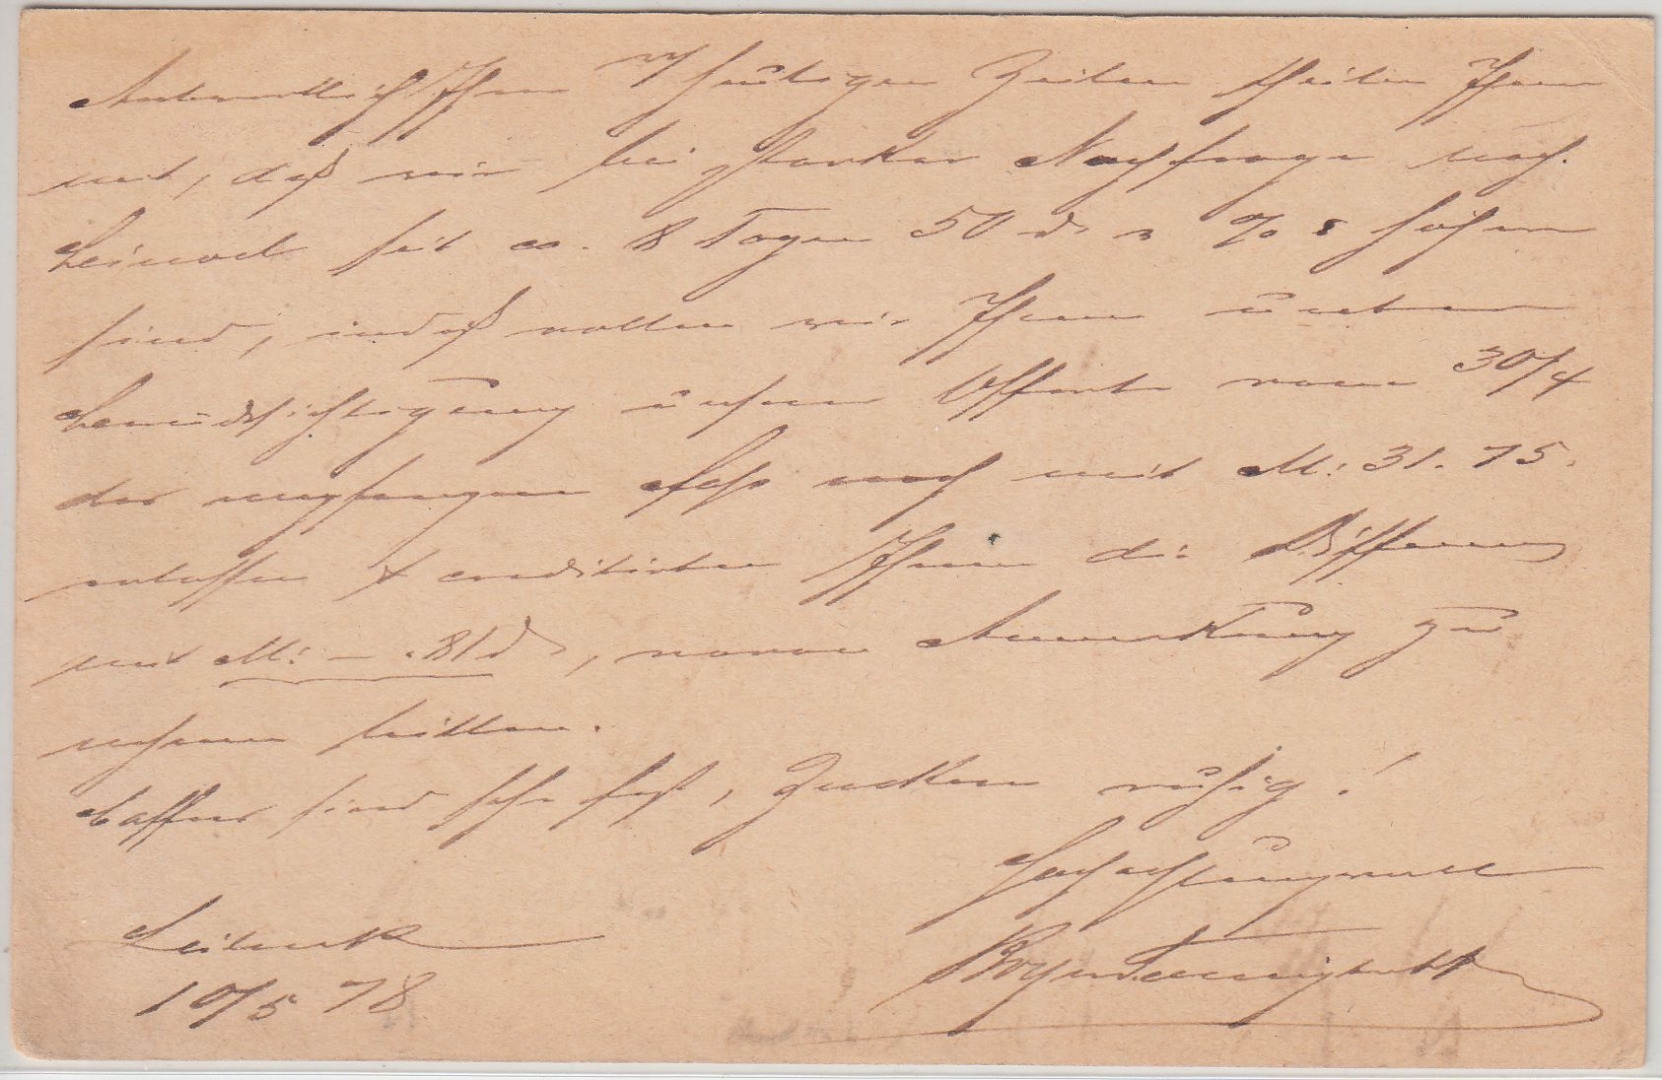 Antwortlich Ihrer Heutigen Zeilen theilen Ihnen
mit, daß wir bei starker Nachfrage nach
seit ca. 8 Tagen 50 d % höher
sind, indeß wollen wir Ihnen unter
Berücksichtigung unserer Offerte vom 30/4
das empfangene Faß noch mit M: 31. 75.
erlassen & creditirten Ihnen die Differenz
mit M: – .81 d, wovon Anmerkung zu
nehmen bitten.
Caffees sind sehr fest, Zucker ruhig!
Hochachtungsvoll
10/5 78